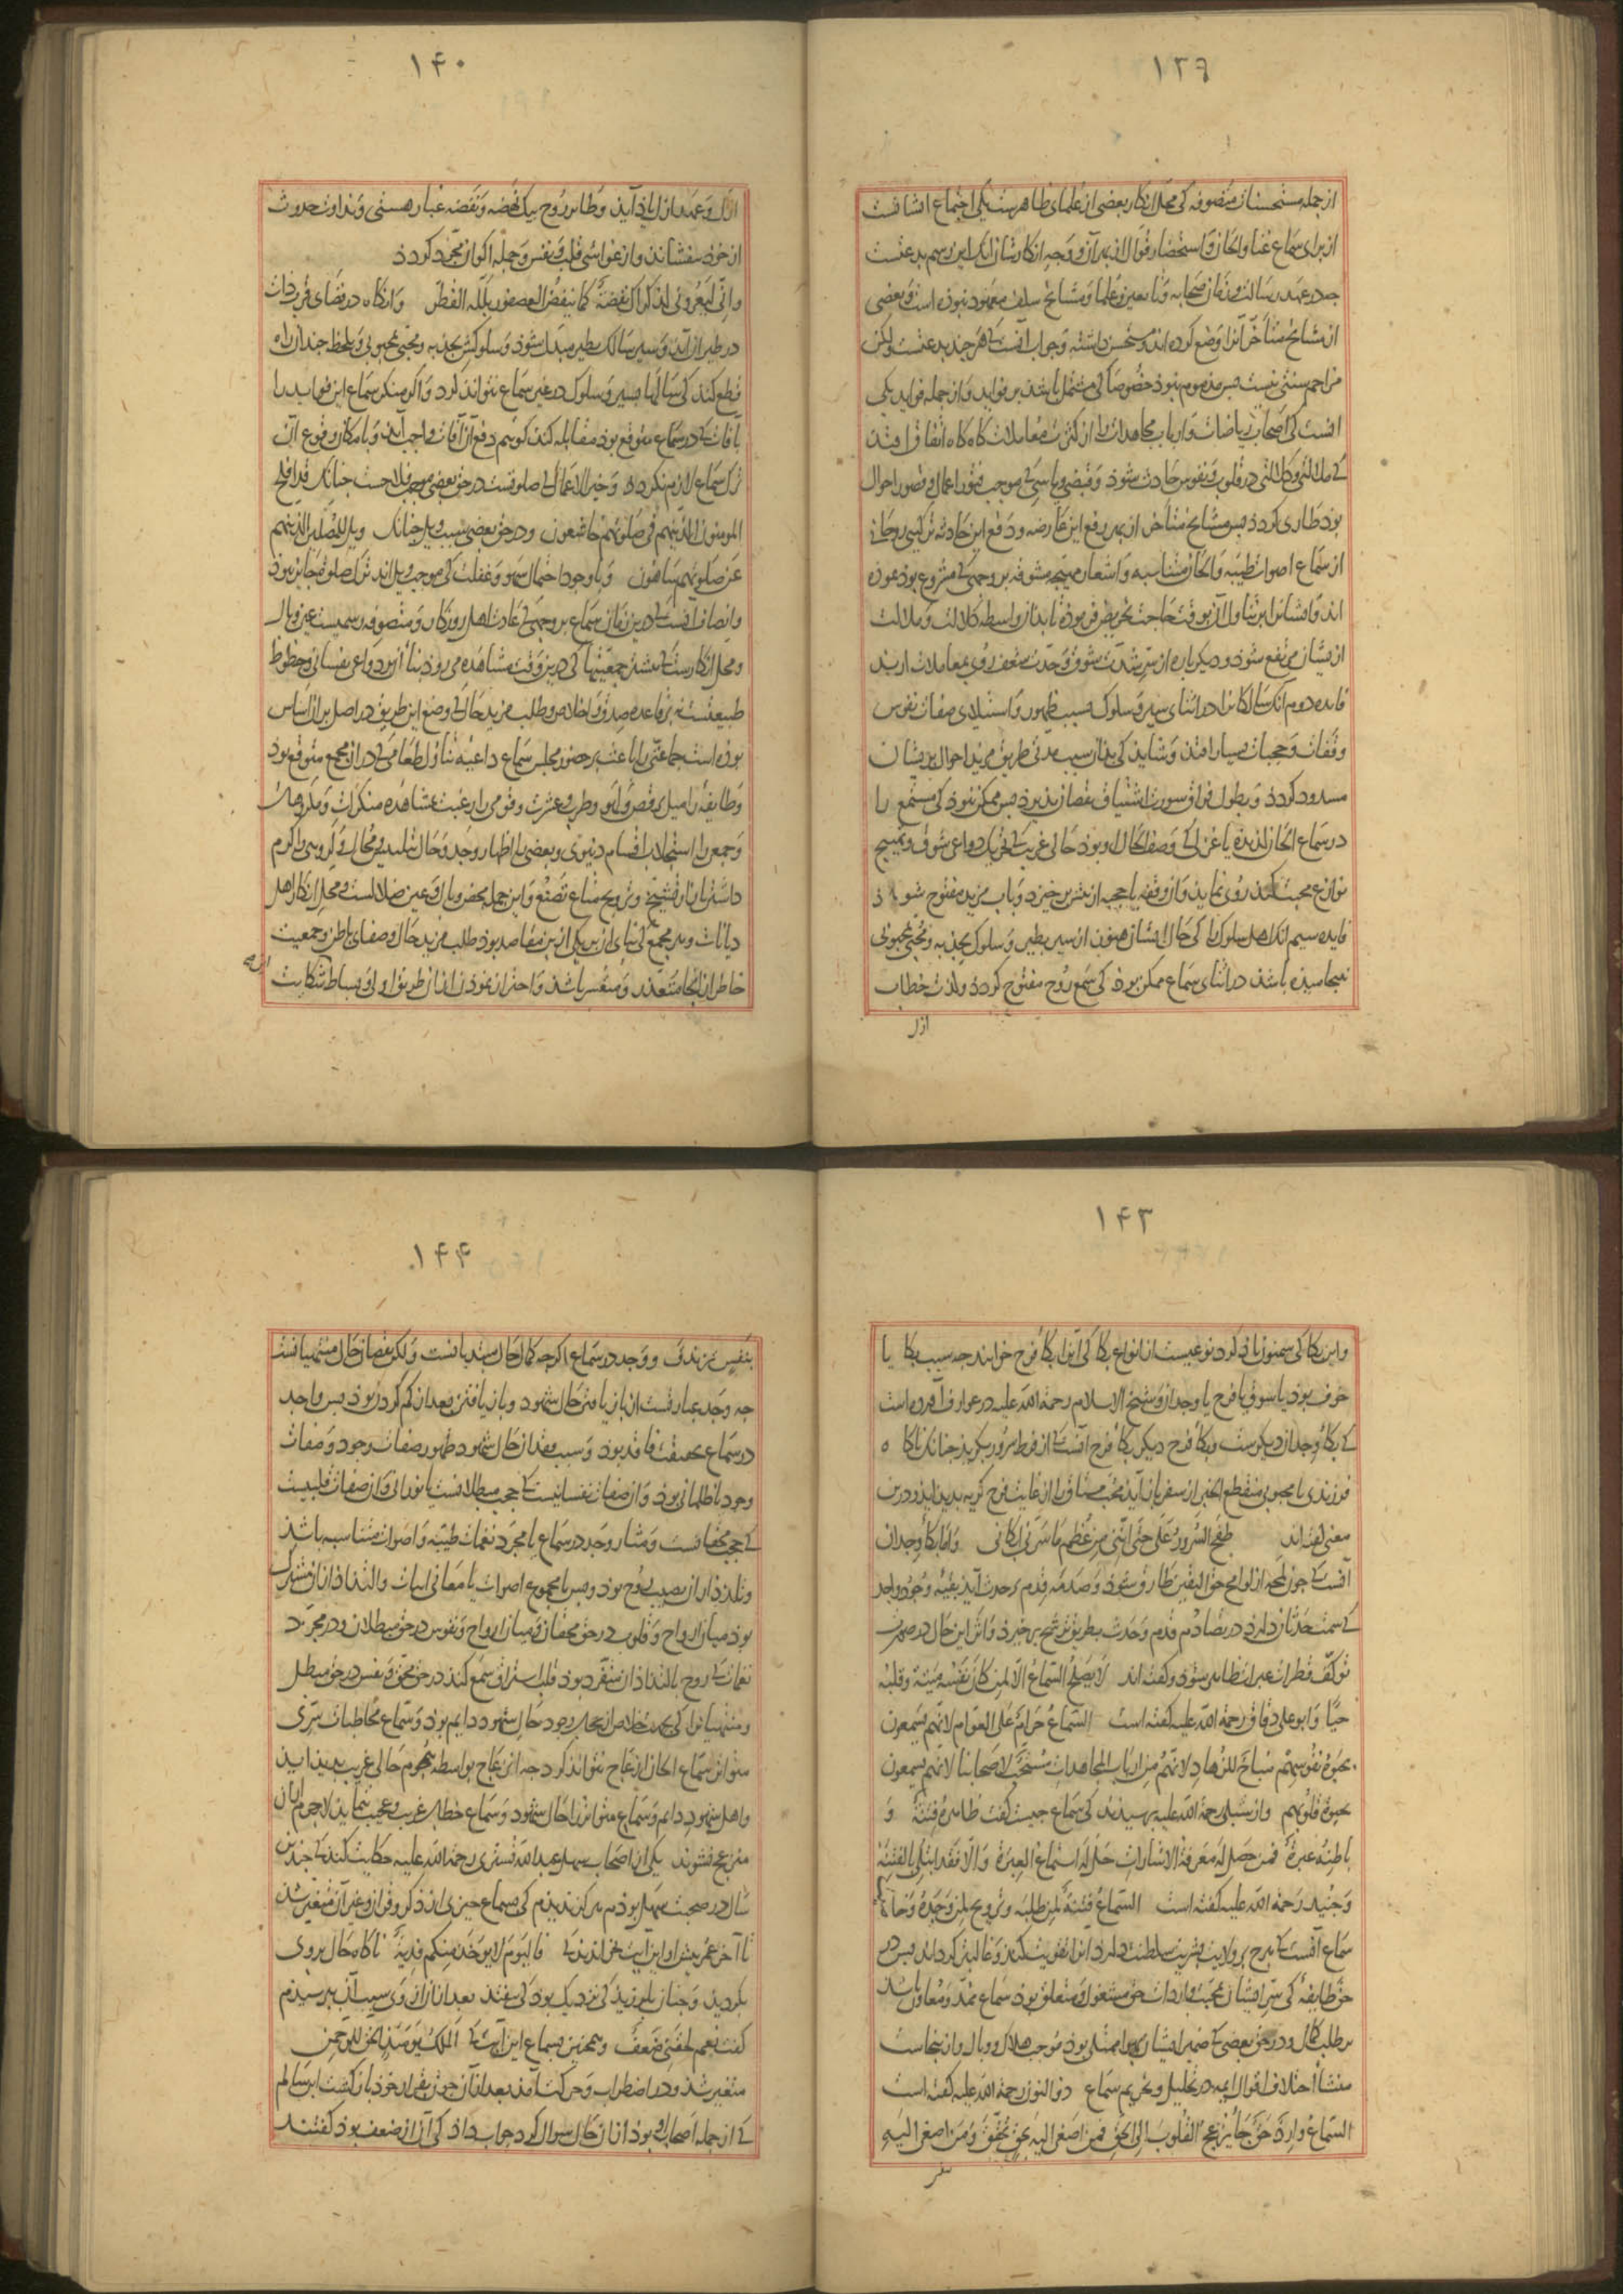 ١٣٩
از جمله مستحسنات متصوفه کی محل انکار بعضی از علمای ظاهرست یکی اجتماع ایشانست
از برای سماع غنا و الحان و استحضار قوال از بهر آن و وجه انکارشان انک این رسم بدعتست
جه در عهد رسالت و زمان صحابه و تابعین و علما و مشایخ سلف معهود نبوذه است و بعضی
از مشایخ متأخر آنرا وضع کرده اند و مستحسن داشته و جواب آنست کی هر جند بدعتست ولکن
مزاحم سنتی نیست بس مذموم نبوذ خصوصا کی مشتمل باشذ بر فواید و از جمله فواید یکی
آنست کی اصحاب ریاضات و ارباب مجاهدات را از کثرت معاملات کاه کاه اتفاق افتد
کی ملالتی و کلالتی در قلوب و نفوس حادث شوذ و قبضی و یاسی کی موجب فتور اعمال و قصور احوال
بوذ طاری کردذ بس مشایخ متأخر از بهر رفع این عارضه و دفع این حادثه ترکیبی روحانی
از سماع اصوات طیبه و الحان متناسبه و اشعار مهیجه مشوقه بر وجهی کی مشروع بوذ نموذه
اند و ایشانرا بر تناول آن بوقت حاجت تحریض فرموذه تا بدان واسطه کلالت و ملالت
از ایشان مرتفع شوذ و دیکر باره از سر شدت شوق و حدت شعف روی بمعاملات ارند
فایده دوم انک سالکانرا در اثنای سیر و سلوک بسبب ظهور و استیلای صفات نفوس
وقفات و حجبات بسیار افتذ و شاید کی بدان سبب مدتی طریق مزید احوال بریشان
مسدود کردذ و بطول فراق سورت اشتیاق نقصان بذیرذ بس ممکن بوذ کی مستمع را
در سماع الحان لذیذه یا غزلی کی وصف الحال او بوذ حالی غریب کی تحریک دواعی شوق و تهییج
نوازع محبت کند روی نماید و آن وقفه یا حجبه از بیش برخیزد و باب مزید مفتوح شوذ
فایده سیم انک اهل سلوک را کی حال ایشان هنوز از سیر بطیر و سلوک بجذبه و محبی بمحبوبی
نینجامیده باشد در اثنای سماع ممکن بوذ کی سمع روح مفتوح کردذ و لذت خطاب
ازل
١۴٠
ازل و عهد اول یاذ آید و طایر روح بیک نهضه و نفضه غبار هستی و نداوت حدوث
از خوذ بیفشاند و از غواشی قلب و نفس و جمله اکوان مجرد کردذ
وانی لتعرونی لذکراک نفضة کما ینتفض العصفور بلله القطر و انکاه در فضای قرب ذات
در طیران آید و سیر سالک بطیر مبدل شوذ و سلوکش بجذبه و محبی بمحبوبی و یک لحظه جندان راه
قطع کند کی سالها بسیر و سلوک در غیر سماع نتواند کرد و اکر منکر سماع این فواید را
بآفات کی در سماع متوقع بوذ مقابله کند کوئیم دفع آن آفات واجب آید و بامکان وقوع آن
ترک سماع لازم نکردد و خیر الاعمال کی صلوتست در حق بعضی موجب فلاحست جنانک قد افلح
المومنون الذین هم فی صلوتهم خاشعون و در حق بعضی سبب ویل جنانک ویل للمصلین الذین هم
عن صلوتهم ساهون و با وجود احتمال سهو و غفلت کی موجب ویل اند ترک صلوة جایز نبوذ
و انصاف آنست کی درین زمان سماع بر وجهی کی عادت اهل روزکار و متصوفه رسمیست عین وبال
و محل انکارست کی بیشتر جمعیتها کی درین وقت مشاهده می روذ بناء آن بر دواعی نفسانی و حظوظ
طبیعتست نه بر قاعده صدق و اخلاص و طلب مزید حال کی وضع این طریق در اصل بر آن اساس
بوذه است جماعتی را باعث بر حضور مجلس سماع داعیه تناول طعامی کی در ان مجمع متوقع بوذ
و طایفه را میل رقص و لهو و طرب و عشرت و قومی را رغبت مشاهده منکرات و مکروهات
و جمعی را استجلاب اقسام دنیوی و بعضی را اظهار وجد و حال بتلبیس و محال و کروهی را کرم
داشتن بازار تشیخ و ترویج متاع تصنع و این جمله محض وبال و عین ضلالست و محل انکار اهل
دیانات و هر مجمع کی بنای آن بر یکی ازین مقاصد بوذ طلب مزید حال و صفای باطن و جمعیت
خاطر از انجا متعذر و متعسر باشد و احتراز نموذن از ان طریق اولی و بساط شکایت
١۴٣
و این بکا کی سمنون یاذ کرد نوعیست از انواع بکا کی آنرا بکاء فرح خوانند جه سبب بکا یا
خوف بوذ یا شوق یا فرح یا وجدان و شیخ الاسلام رحمة الله علیه در عوارف آورده است
کی بکاء وجدان دیکرست و بکاء فرح دیکر بکاء فرح آنست کی از فرط سرور بکریذ جنانک ناکاه
فرزندی یا محبوبی منقطع الخبر از سفر باز آید محب مشتاق را از غایت فرح کریه بدید ایذ و درین
معنی کفته اند طفح السرور علی حتی اننی من عظم ما سرنی ابکانی و اما بکاء وجدان
آنست کی جون لمحه از لوامع حق الیقین طارق شوذ و صدمه قدم بر حدث آید بقیه وجود واجد
کی سمت حدثان دارذ در تصادم قدم و حدث بطریق ترشح برخیزد و اثر این حال در صورت
توکف قطرات عبرات ظاهر شوذ و کفته اند لا یصلح السماع الا لمن کان نفسه میتة وقلبه
حیا و ابو علی دقاق رحمة الله علیه کفته است السماع حرام علی العوام لانهم یسمعون
بحیوة نفوسهم مباح للزهاد لانهم من ارباب المجاهدات مستحب لاصحابنا لانهم یسمعون
بحیوة قلوبهم و از شبلی رحمة الله علیه برسیذند کی سماع جیست کفت ظاهره فتنة و
باطنه عبرة فمن حصل له معرفة الاشارات حل له استماع العبرة والا فقد ابتلی بالفتنة
و جنید رحمة الله علیه کفته است السماع فتنة لمن طلبه وترویح لمن وجده
سماع آنست کی هرج بر ولایت بشریت سلطنت دارد آنرا تقویت کند و غالب کرداند بس در
حق طایفه کی سر ایشان بمحبت و ارادات حق مشغول و متعلق بوذ سماع ممد و معاون باشد
بر طلب کمال و در حق بعضی کی ضمیر ایشان بهوا ممتلی بوذ موجب هلاک و وبال و ازینجاست
منشأ اختلاف اقوال ایمه در تحلیل و تحریم سماع ذوالنون رحمة الله علیه کفته است
السماع وارد حق جاء یزعج القلوب الی الحق فمن اصغی الیه بحق تحقق ومن اصغی الیه
١۴۴
بنفس تزندق و وجد در سماع اکرجه کمال حال مبتدیانست ولکن نقصان حال منتهیانست
جه وجد عبارتست از باز یافتن حال شهود و باز یافتن بعد از کم کردن بوذ بس واجد
در سماع بحقیقت فاقد بوذ و سبب فقدان حال شهود ظهور صفات وجود و صفات
وجود یا ظلمانی بوذ و آن صفات نفسانیست کی حجب مبطلانست یا نورانی و آن صفات قلبیست
کی حجب محقانست و مثار وجد در سماع یا مجرد نغمات طیبه و اصوات متناسبه باشد
و تلذذ از ان نصیب روح بوذ و بس یا مجموع اصوات با معانی ابیات و التذاذ از ان مشترک
بوذ میان ارواح و قلوب در حق محقان و میان ارواح و نفوس در حق مبطلان و در مجرد
نغمات کی روح بالتذاذ ان متفرد بوذ قلب استراق سمع کند در حق محق و نفس در حق مبطل
و منتهیانرا کی بجهت خلاص از حجاب وجود حال شهود دایم بوذ و سماع مخاطبات سری
متواتر سماع الحان ازعاج نتواند کرد جه انزعاج بواسطه هجوم حالی غریب بدید اید
و اهل شهود دایم و سماع متواتر را حال شهود و سماع خطاب غریب و عجیب ننماید لاجرم از ان
منزعج نشوند یکی از اصحاب سهل عبدالله تستری رحمة الله علیه حکایت کند کی جندین
سال در صحبت سهل بوذم هرکز ندیذم کی بسماع جیزی از ذکر و قرآن و غیر آن متغیر شد
تا آخر عمر بیش او این آیت خواندند کی فالیوم لا یؤخذ منکم فدیة ناکاه حال بروی
بکردید و جنان بلرزید کی نزدیک بوذ کی بیفتد بعد از ان از وی سبب آن برسیذم
کفت نعم لحقنی ضعف و همجنین بسماع این آیت کی الملک یومئذ الحق للرحمن
متغیر شد و در اضطراب و حرکت آمد بعد از آن جون بقرار خوذ باز کشت ابن سالم
کی از جمله اصحاب او بوذ از ان حال سوال کرد جواب داذ کی آن از ضعف بوذ کفتند